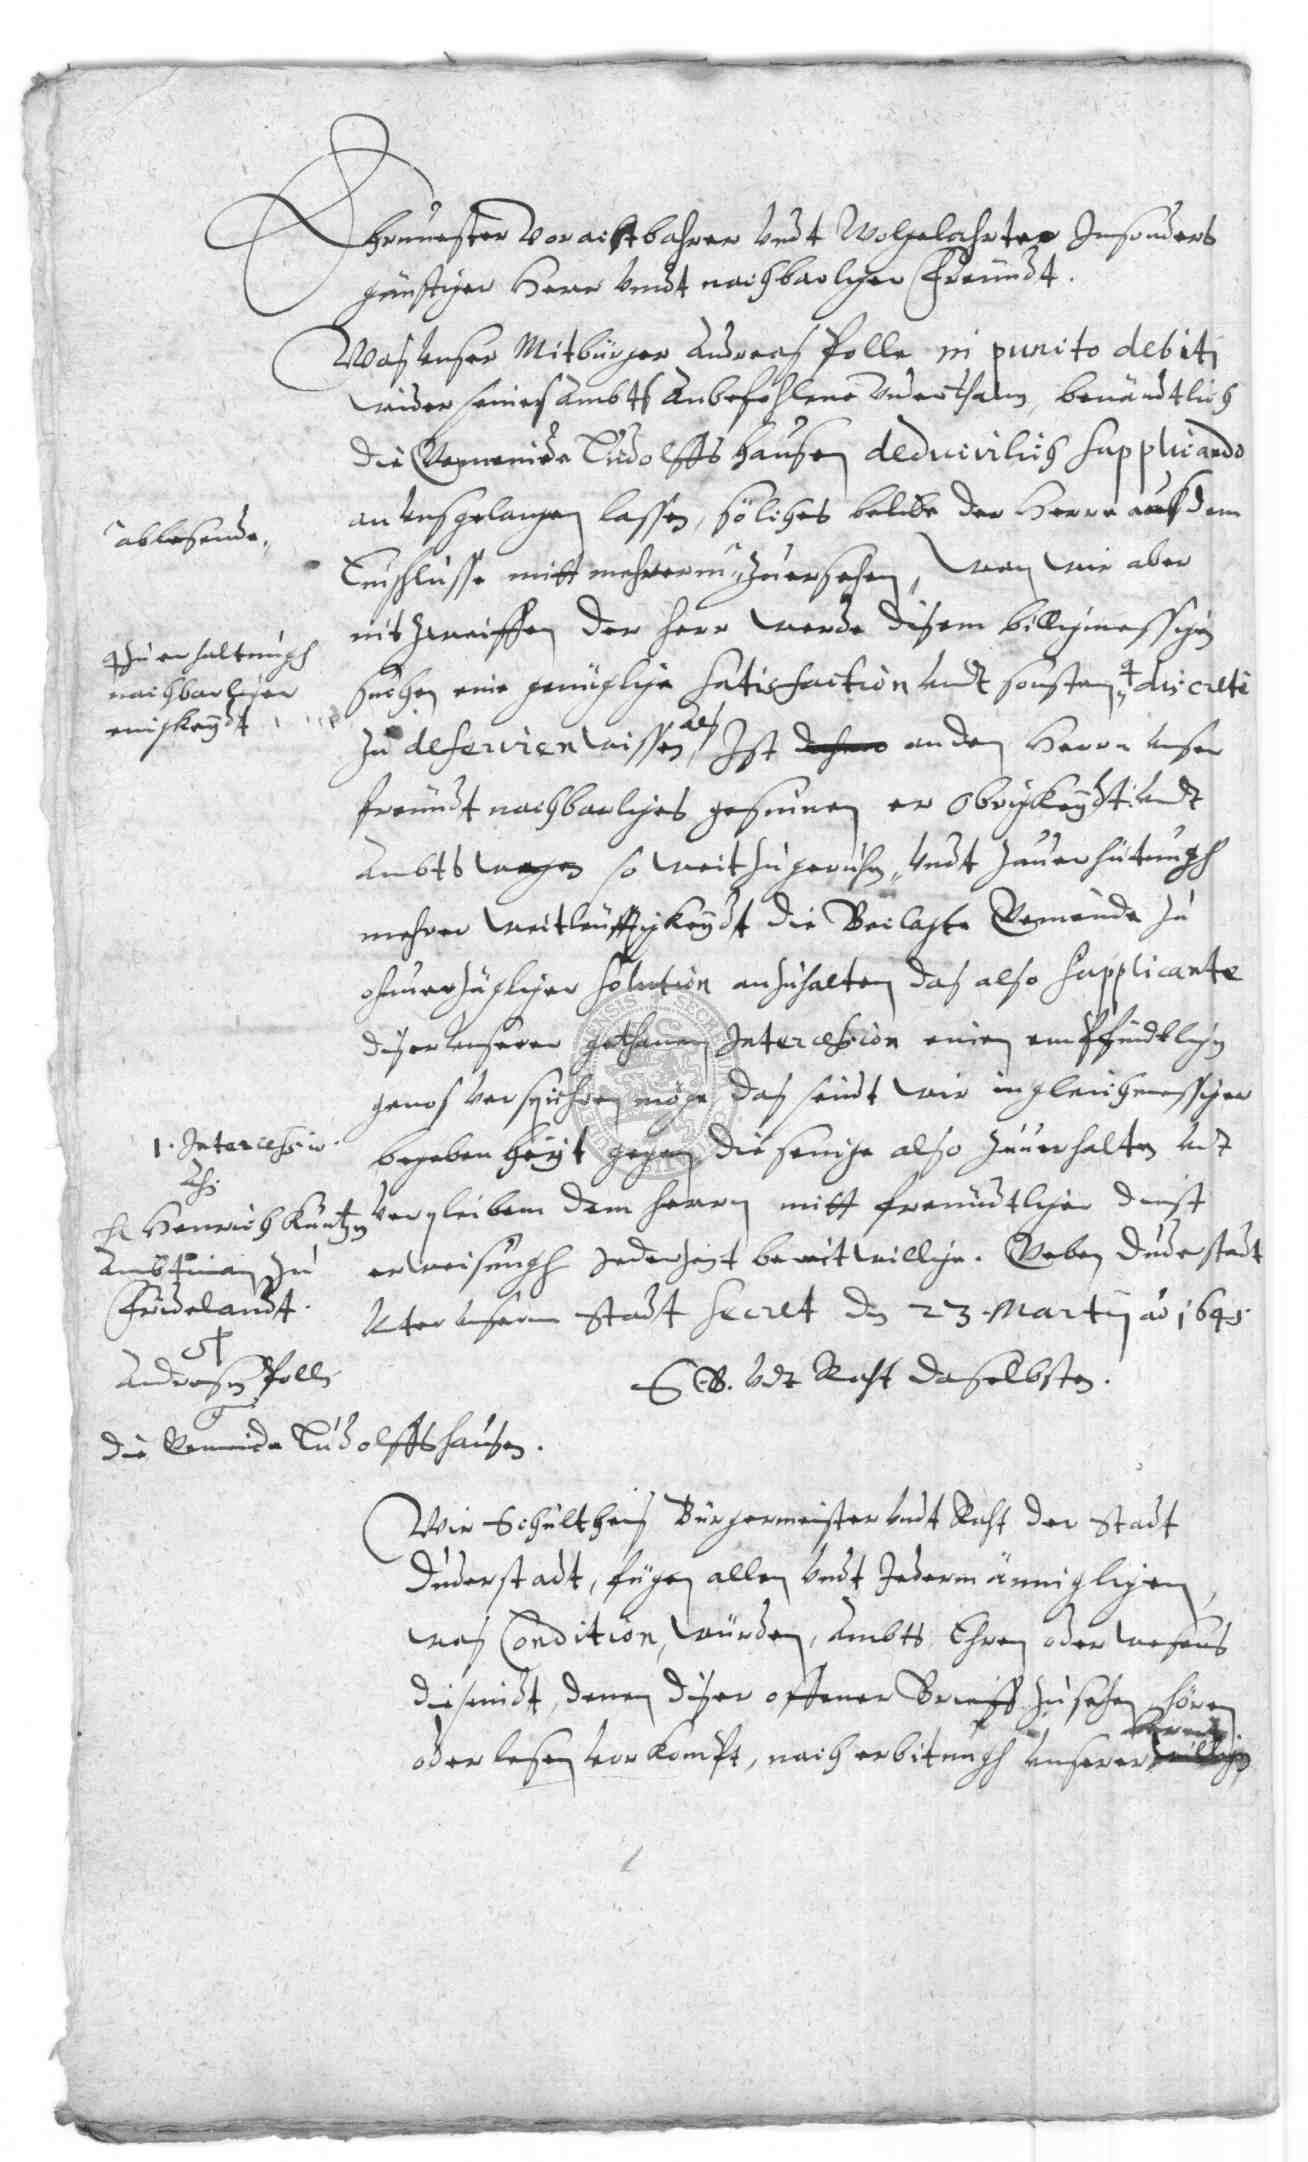 Ehrnuester Vorachtbahrer vndt Wolgelahrter Insonders
günstiger Herr vndt nachbarlicher Freundt.
Was vnser Mitbürger Andreas Polle in puncto debiti
wider seines Ambts Anbefohlene Vnderthanen, benändtlich
die Gemeinde Ludolffshausen deducirlich supplicando
an vns gelangen lassen, sölches beliebe der Herr auß dem
Einschlusse mitt mehrerm zuersehen, wan wir aber
nit zweiffen der Herr werde disem billigmessigen
suchen eine genügliche satisfaction vndt sonsten discrete
zu deferiren wissen, als Ist an den Herrn vnser
freundt nachbarliches gesinnen er Obrigkeydt vndt
Ambts wegen so weit zugeruhen, vndt zauerhütungh
mehrer weitleuffigkeydt die Beclagte Gemeinde zu
ohnuerzüglicher solution anzuhalten das also supplicante
diser vnserer gethanen Intercession einen empfindtlichen
genos verspühren möge, das seindt wir in gleichmessiger
begebenheyt gegen die seinige also zuuerhalten vndt
verpleiben dem Herrn mitt freundtlicher dinst
erweisungh Jederzeyt bereitwillige. Geben Duderstadt
Vnter vnserm Stadt Secret den 23 Martij ao 1645
S. B. vndt Raht daselbsten.
ablesende.
Zu erhaltungh
nachbarlicher
einigkeydt
1. Intercessio
Ahn
H. Henrich Kuntzen
Ambtman zu
Fridelandt.
Andreasen Polle
die Gemeinde Ludolffshausen.
Wir Schultheis Bürgermeister vndt Raht der Stadt
Duderstadt, fügen allen vndt Jedermänniglichen,
was Condition, würden, Ambts Ehren oder wesens
die seindt, denen diser offener Brieff zu sehen, hören
oder lesen vorkompt, nach erbitungh vnserer